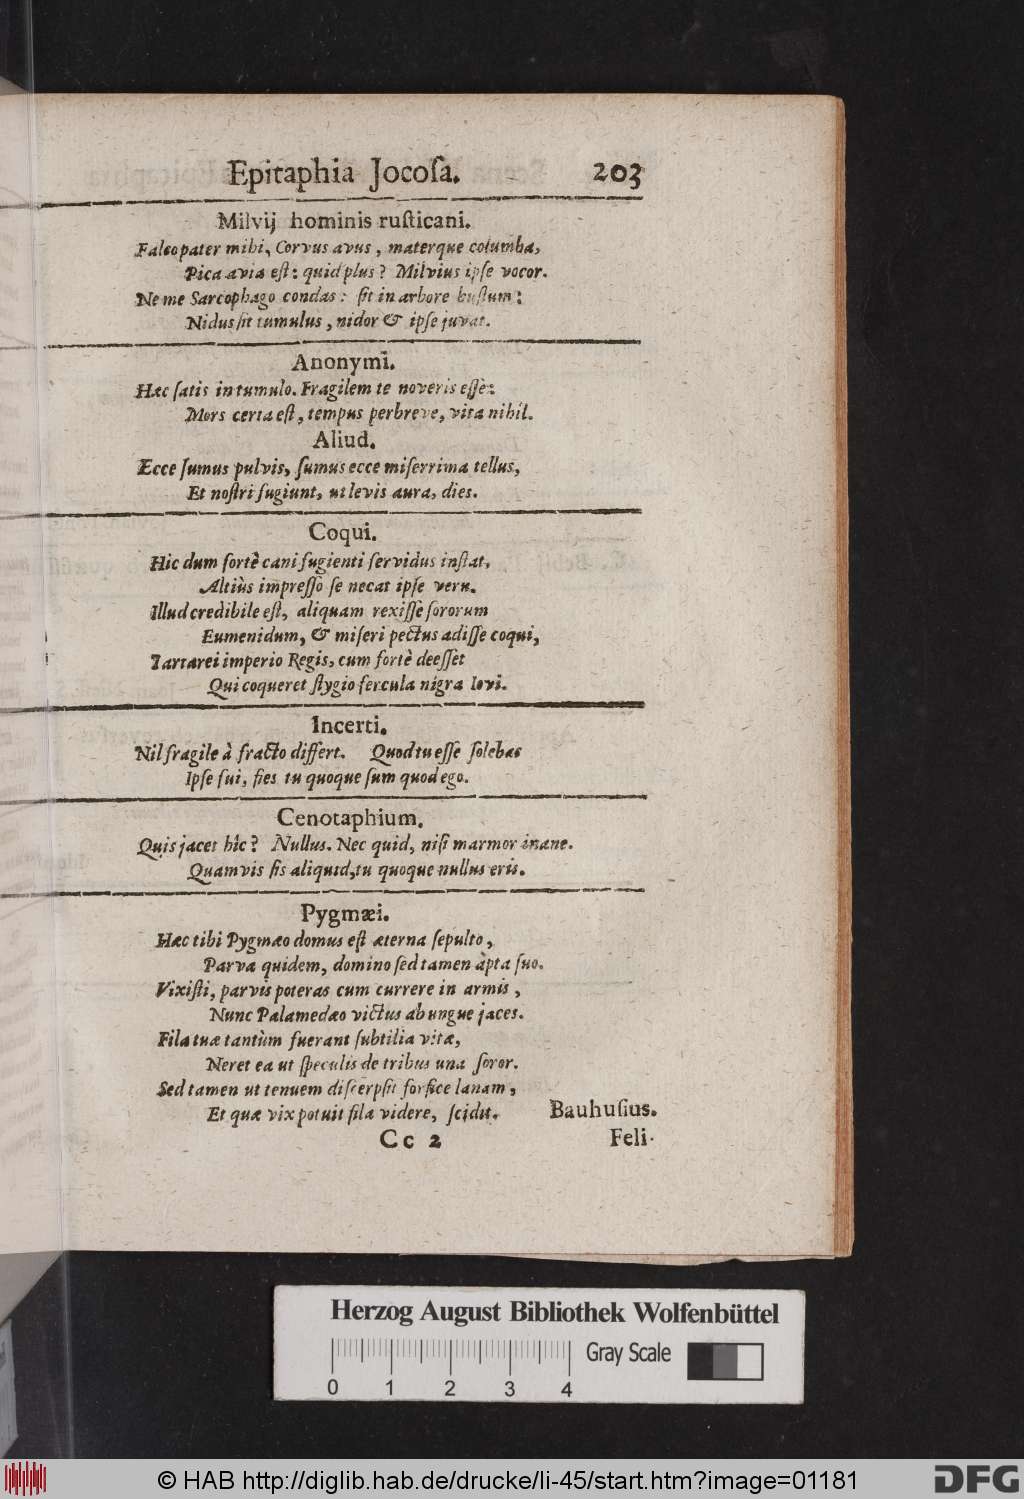 Epitaphia Jocoſa. 203
Milvij hominis ruſticani.
Falco pater mihi, Corvus avus, materque columba,
Pica avia eſt: quid plus? Milvius ipſe vocor.
Ne me Sarcophago condas: ſit in arbore buſtum:
Nidus ſit tumulus, nidor & ipſe juvat.
Anonymi.
Hæc ſatis in tumulo. Fragilem te noveris eſſe:
Mors certa eſt, tempus perbreve, vita nihil.
Aliud.
Ecce ſumus pulvis, ſumus ecce miſerrima tellus,
Et noſtri fugiunt, ut levis aura, dies.
Coqui.
Hic dum fortè cani fugienti fervidus inſtat,
Altiùs impreſſo ſe necat ipſe veru.
Illud credibile eſt, aliquam rexiſſe ſororum
Eumenidum, & miſeri pectus adiſſe coqui,
Tartarei imperio Regis, cum fortè deeſſet
Qui coqueret ſtygio fercula nigra Iovi.
Incerti.
Nil fragile à fracto differt. Quod tu eſſe ſolebas
Ipſe fui, fies tu quoque ſum quod ego.
Cenotaphium.
Quis jacet hîc? Nullus. Nec quid, niſi marmor inane.
Quamvis ſis aliquid, tu quoque nullus eris.
Pygmæi.
Hæc tibi Pygmæo domus eſt æterna ſepulto,
Parva quidem, domino ſed tamen àpta ſuo.
Vixiſti, parvis poteras cum currere in armis,
Nunc Palamedæo victus ab ungue jaces.
Fila tuæ tantùm fuerant ſubtilia vitæ,
Neret ea ut ſpeculis de tribus una ſoror.
Sed tamen ut tenuem diſcerpſit forfice lanam,
Et quæ vix potuit fila videre, ſcidit. Bauhuſius.
Cc 2 Feli-
Herzog August Bibliothek Wolfenbüttel
Gray Scale
0 1 2 3 4
© HAB http://diglib.hab.de/drucke/li-45/start.htm?image=01181
DFG